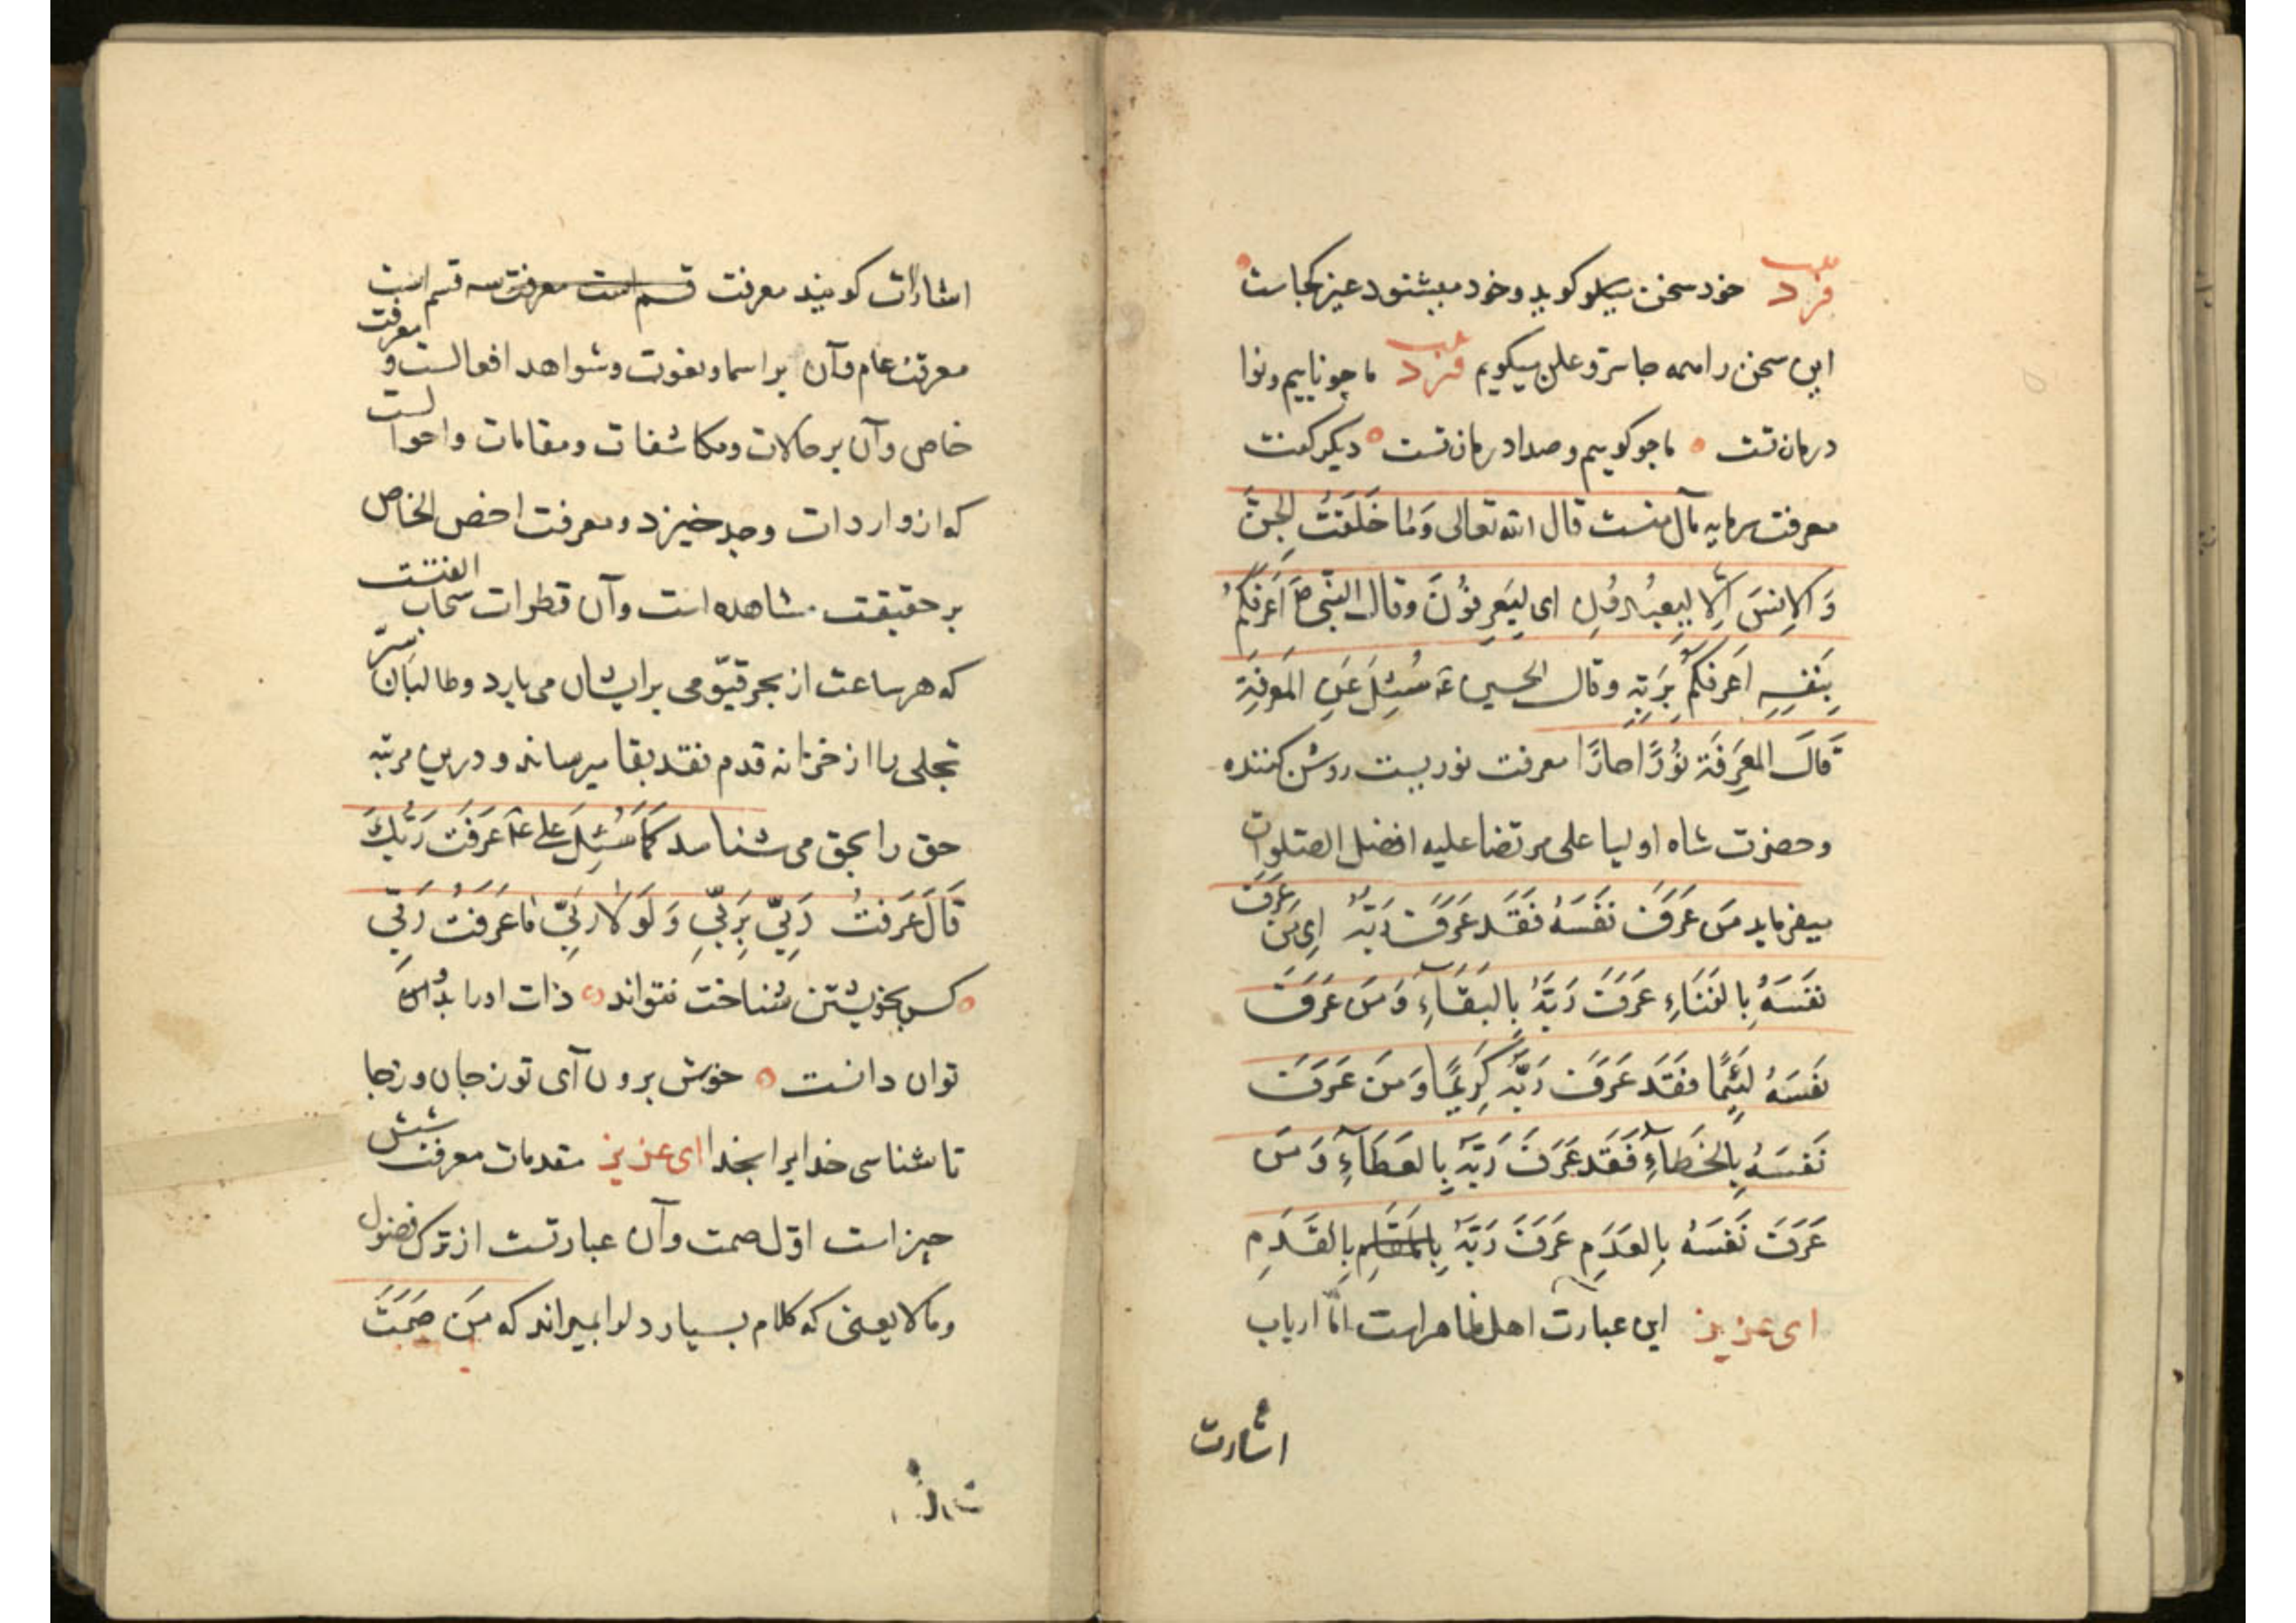 فرد خود سخن میکوید وخود میشنود غیر کجاست
این سخن را همه جا سر و علن میکویم فرد ما چو ناییم ونوا
درمان تست ما چو کوییم وصدا درمان تست دیکر کفت
معرفت سرمایه مآل منست قال الله تعالی وَمَا خَلَقْتُ الجِنَّ
وَالاِنسَ اِلّا لِیَعبُدُونِ ای لِیَعرِفُونَ وقال النّبی ص اَعرَفُکُم
بِنَفسِهِ اَعرَفُکُم بِرَبِّهِ وقال الحسین ع سُئِلَ عَنِ المَعرِفَةِ
قَالَ المَعرِفَة نُورًا معرفت نوریست روشن کننده
وحضرت شاه اولیا علی مرتضا علیه افضل الصّلوات
میفرماید مَن عَرَفَ نَفسَهُ فَقَد عَرَفَ رَبَّهُ ای مَن عَرَفَ
نَفسَهُ بِالفَنَاءِ عَرَفَ رَبَّهُ بِالبَقَآءِ وَمَن عَرَفَ
نَفسَهُ لَئِیمًا فَقَد عَرَفَ رَبَّهُ کَرِیمًا وَمَن عَرَفَ
نَفسَهُ بِالخَطَآءِ فَقَد عَرَفَ رَبَّهُ بِالعَطَآءِ وَمَن
عَرَفَ نَفسَهُ بِالعَدَمِ عَرَفَ رَبَّهُ بِالقَدَمِ
ای عزیز این عبارت اهل ظاهر است امّا ارباب
اشارت
اشارات کویند معرفت قسم است معرفت سه قسم است
معرفت عام وآن بر اسما ونعوت وشواهد افعالست و معرفت
خاص وآن بر حالات ومکاشفات ومقامات واحوالست
که از واردات وجد خیزد ومعرفت اخص الخاص
بر حقیقت مشاهده است وآن قطرات سحاب الفتت
که هر ساعت از بحر قیّومی بر ایشان می بارد وطالبان سرّ
تجلی را از خزانه قدم نقد بقا میرساند و درین مرتبه
حق را بحق می شناسد کَمَا سُئِلَ علی ع عَرَفتَ رَبَّكَ
قَالَ عَرَفتُ رَبِّی بِرَبِّی وَلَولا رَبِّی مَا عَرَفتُ رَبِّی
کس بخویشتن شناخت نتواند ذات او را بدو
توان دانست خوش برون آی تو ز جان وز جا
تا شناسی خدایرا بخدا ای عزیز مقدمات معرفت شش
چیز است اوّل صمت وآن عبارتست از ترک فضول
وما لا یعنی که کلام بسیار دلرا بمیراند که مَن صَمَتَ